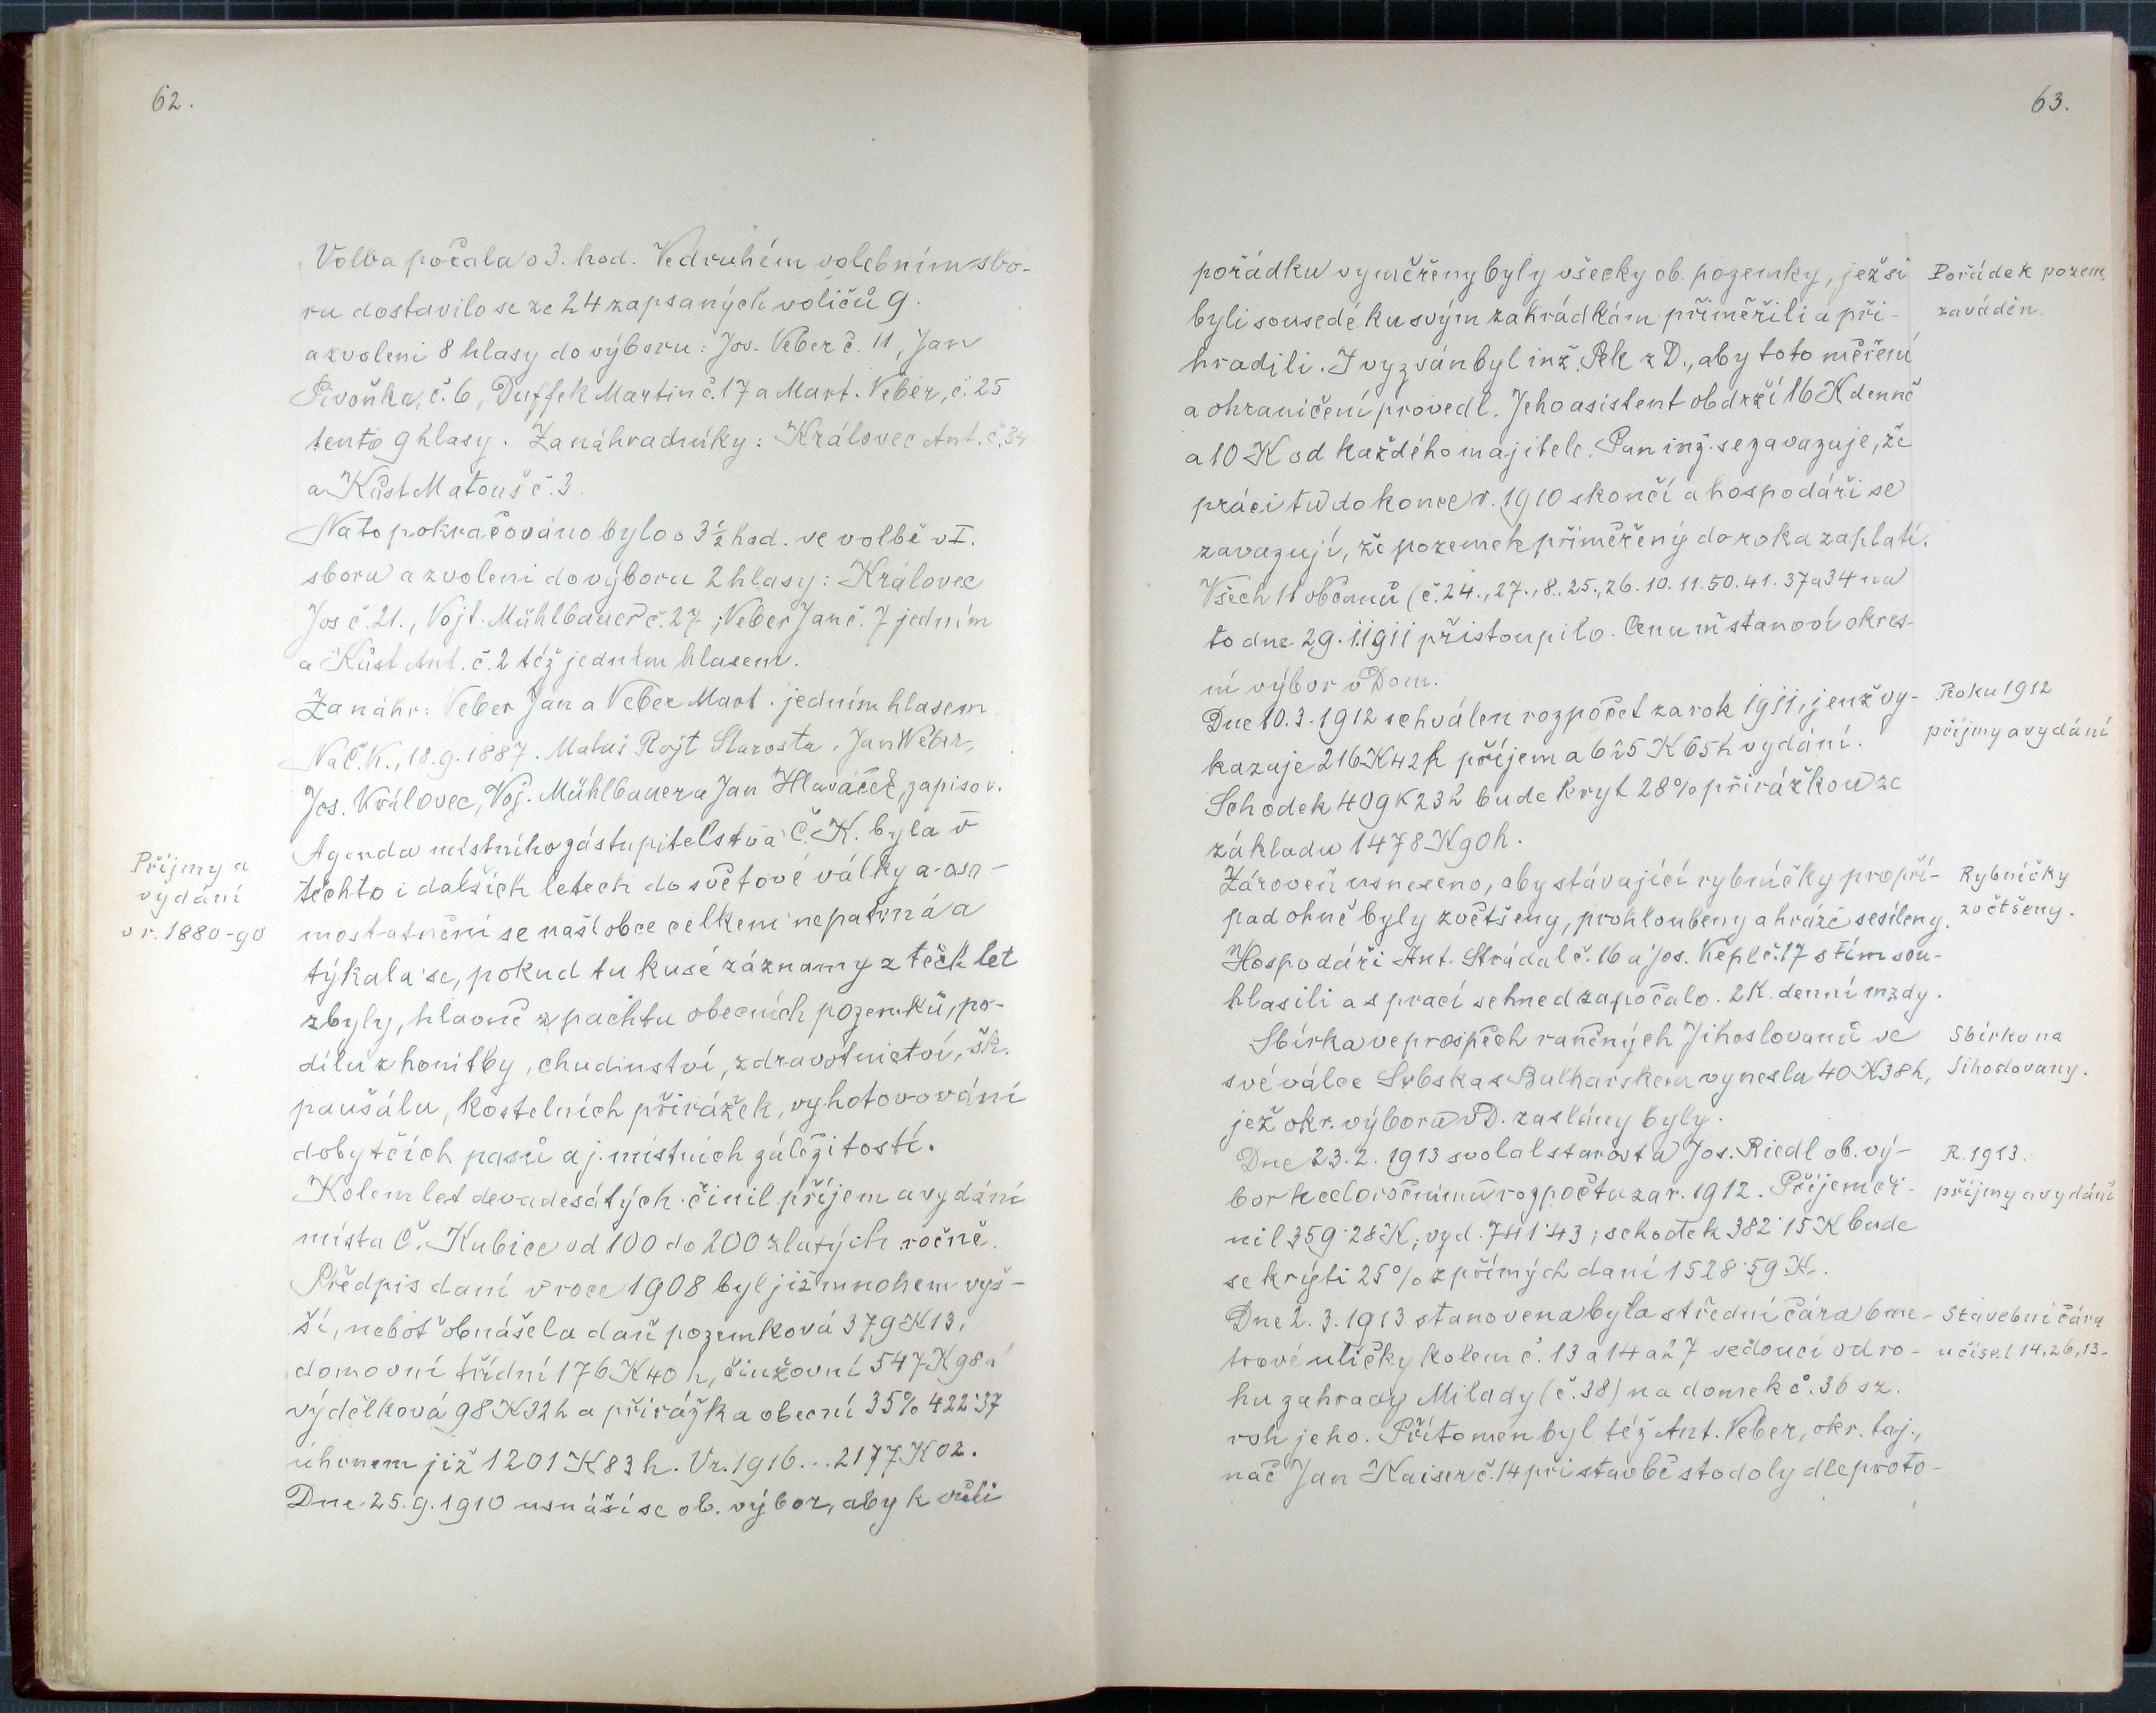 62.
Volba počala o 3. hod. Ve druhém volebním sbo-
ru dostavilo se ze 24 zapsaných voličů 9.
a zvoleni 8 hlasy do výboru: Jos. Veber č. 11, Jan
Pivoňka, č. 6, Duffek Martin č. 17 a Mart. Veber, č. 25
tento 9 hlasy. Za náhradníky: Královec Ant. č. 34
a Kůst Matouš č. 3.
Na to pokračováno bylo o 3½ hod. ve volbě v I.
sboru a zvoleni do výboru 2 hlasy: Královec
Jos č. 21., Vojt. Mühlbauer č. 27, Veber Jan č. 7 jedním
a Kůst Ant. č. 2 též jedním hlasem.
Za náhr: Veber Jan a Veber Mart. jedním hlasem.
Na Č.K., 18.9.1887. Matuš Rojt Starosta, Jan Weber,
Jos. Královec, Voj. Mühlbauer a Jan Hlaváček, zapisov.
Příjmy a
vydání
v r. 1880-90
Agenda místního zástupitelstva Č.K. byla v
těchto i dalších letech do světové války a osa-
mostatnění se naší obce celkem nepatrná a
týkala se, pokud tu kusé záznamy z těch let
zbyly, hlavně z pachtu obecních pozemků, po-
dílu z honitby, chudinství, zdravotnictví, šk.
paušálu, kostelních přirážek, vyhotovování
dobytčích pasů a j. místních záležitostí.
Kolem let devadesátých činil příjem a vydání
místa Č. Kubice od 100 do 200 zlatých ročně.
Předpis daní v roce 1908 byl již mnohem vyš-
ší, neboť obnášela daň pozemková 379 K 13,
domovní třídní 176 K 40 h, činžovní 547 K 98 h
výdělková 98 K 32 h a přirážka obecní 35% 422·37
úhrnem již 1201 K 83 h. V r. 1916... 2177 K 02.
Dne 25.9.1910 usnáší se ob. výbor, aby k vůli
63.
pořádku vyměřeny byly všecky ob. pozemky, jež si
byli sousedé ku svým zahrádkám přiměřili a při-
hradili. I vyzván byl inž. Pek z D., aby toto měření
a ohraničení provedl. Jeho asistent obdrží 16 K denně
a 10 K od každého majitele. Pan inž. se zavazuje, že
práci tu do konce r. 1910 skončí a hospodáři se
zavazují, že pozemek přiměřený do roka zaplatí.
Všech 11 občanů (č. 24., 27., 8., 25., 26. 10. 11. 50. 41. 37 a 34 na
to dne 29.1.1911 přistoupilo. Cenu m² stanoví okres-
ní výbor v Dom.
Pořádek pozem.
zaváděn.
Dne 10.3.1912 schválen rozpočet za rok 1911, jenž vy-
kazuje 216 K 42 h příjem a 625 K 65 h vydání.
Schodek 409 K 23 h bude kryt 28% přirážkou ze
základu 1478 K 90 h.
Roku 1912
příjmy a vydání
Zároveň usneseno, aby stávající rybníčky pro pří-
pad ohně byly zvětšeny, prohloubeny a hráze sesíleny.
Hospodáři Ant. Strádal č. 16 a Jos. Kepl č. 17 s tím sou-
hlasili a s prací se hned započalo. 2 K. denní mzdy.
Rybníčky
zvětšeny.
Sbírka ve prospěch raněných Jihoslovanů ve
své válce Srbska s Bulharskem vynesla 40 K 38 h,
jež okr. výboru v D. zaslány byly.
Sbírka na
Jihoslovany.
Dne 23.2.1913 svolal starosta Jos. Riedl ob. vý-
bor k celoročnímu rozpočtu za r. 1912. Příjem či-
nil 359·28 K, vyd. 741·43; schodek 382·15 K bude
se krýti 25% z přímých daní 1528·59 K.
R. 1913.
příjmy a vydání
Dne 2.3.1913 stanovena byla střední čára 6 me-
trové uličky kolem č. 13 a 14 až 7 vedoucí od ro-
hu zahrady Milady (č. 38) na domek č. 36 sz.
roh jeho. Přítomen byl též Ant. Veber, okr. taj.,
nač Jan Kaiser č. 14 při stavbě stodoly dle proto-
Stavební čára
u čísel 14, 26, 13.